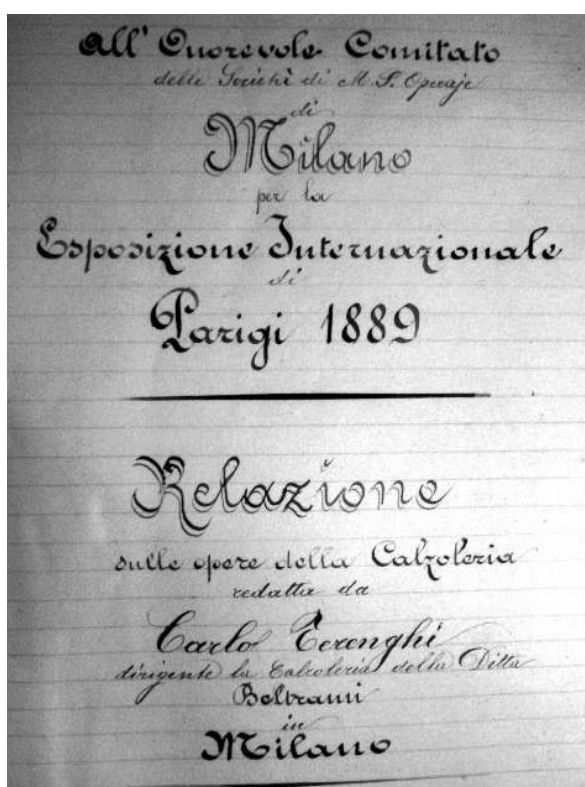 All' Onorevole Comitato
delle Società di M. S. Operaje
di
Milano
per la
Esposizione Internazionale
di
Parigi 1889
Relazione
sulle opere della Calzoleria
redatta da
Carlo Terenghi
dirigente la Calzoleria della Ditta
Beltrami
in
Milano